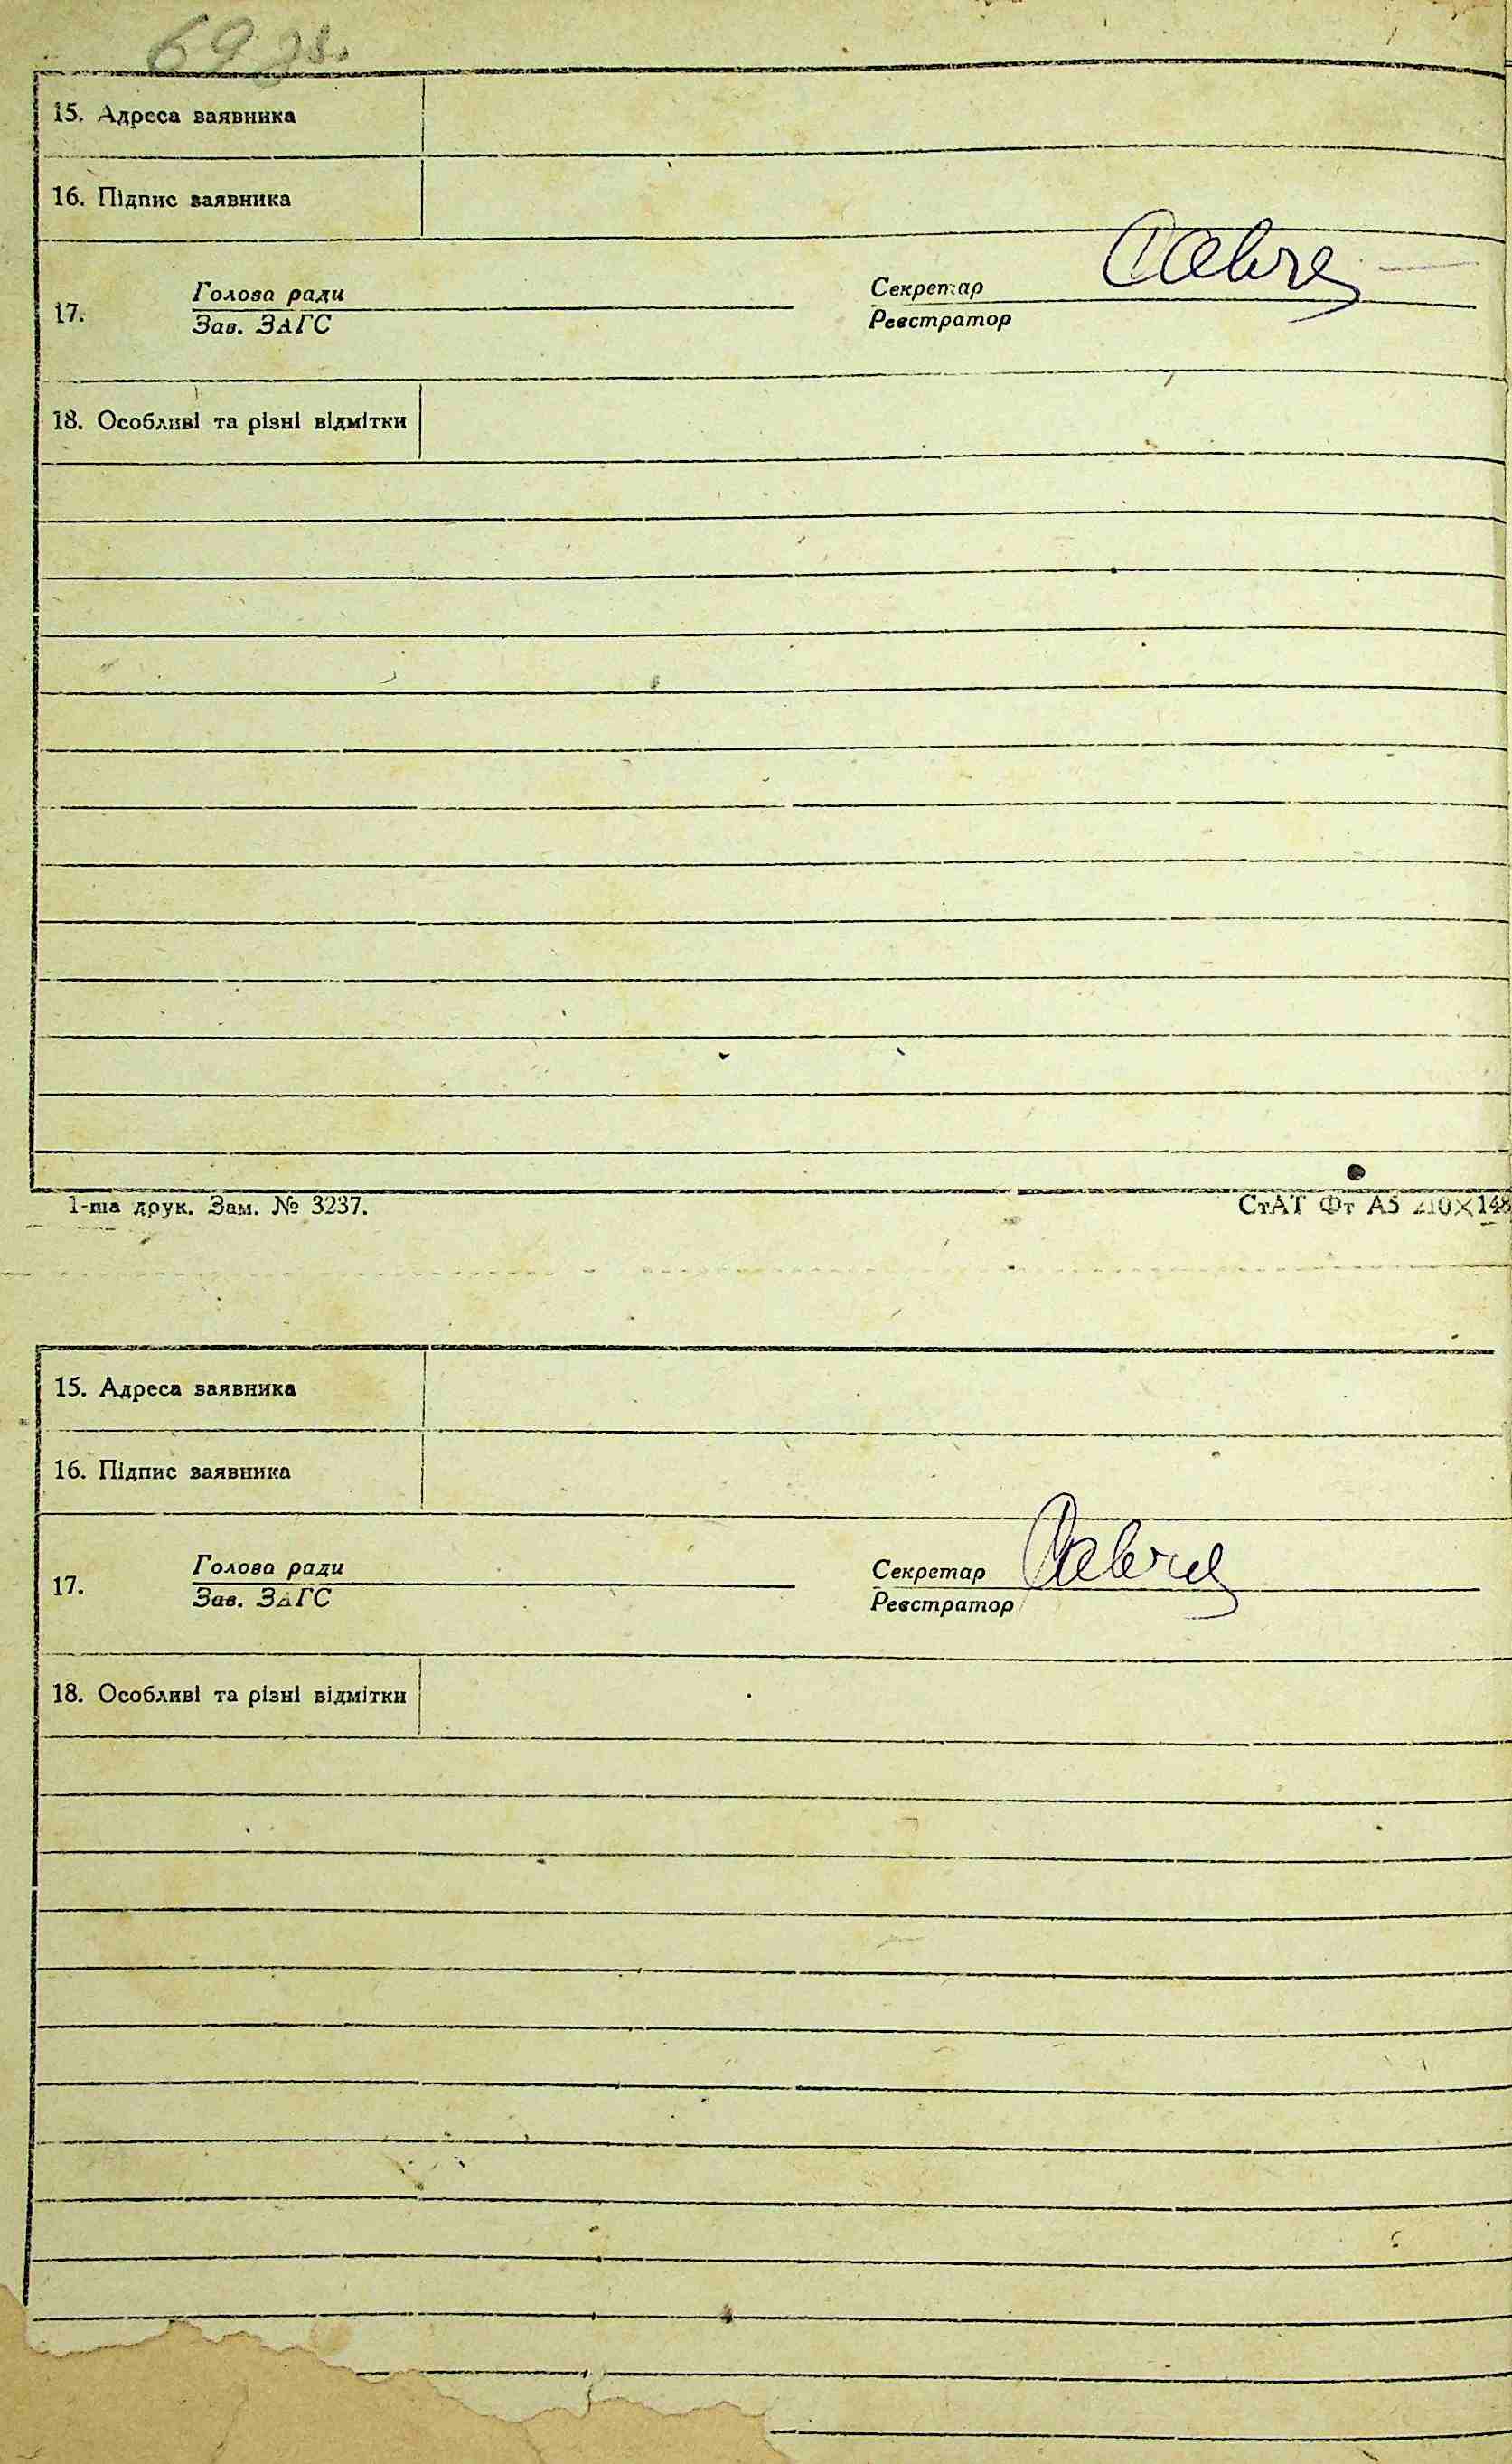 69 зв.
15. Адреса заявника
16. Підпис заявника
17. Голова ради Секретар
Зав. ЗАГС Реєстратор
18. Особливі та різні відмітки
1-ша друк. Зам. № 3237. СтАТ Фт А5 210×148
15. Адреса заявника
16. Підпис заявника
17. Голова ради Секретар
Зав. ЗАГС Реєстратор
18. Особливі та різні відмітки